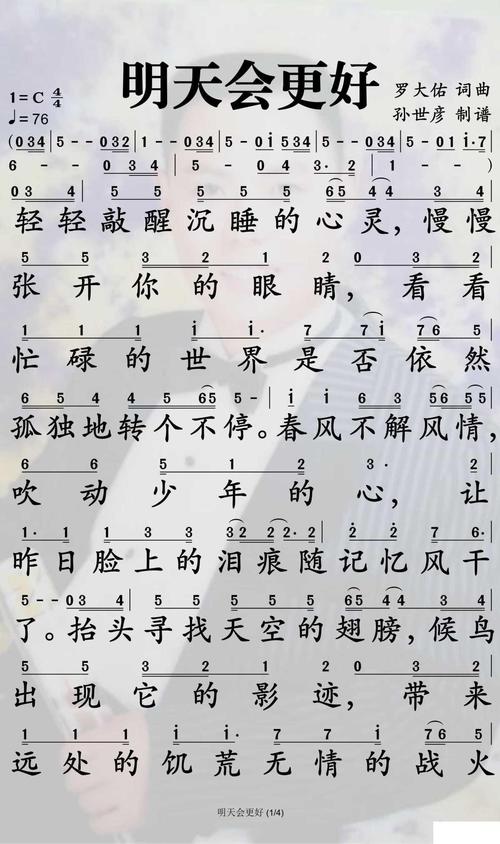 明天会更好
1=C 4/4
♩=76
罗大佑 词曲
孙世彦 制谱
(034 5--032 1--034 5--0i534 5--01i·7
6-- 034 5-- 054 3·2 1--)
034 5 5 5 5 65 443 4
轻轻敲醒沉睡的心灵，慢慢
5 5 3 2 1 2 0 3 2
张开你的眼睛，看看
1 1 1 i i· 7 7i 7 765
忙碌的世界是否依然
6 5 4 4 5 65 5- i i 6 3 56 55
孤独地转个不停。春风不解风情，
6 6 5 1 2 3· 2
吹动少年的心，让
1· 1 1 3 3 32 22· 1 2 2 7 6·
昨日脸上的泪痕随记忆风干
5--03 4 5 5 5 5 65 44 3 4
了。抬头寻找天空的翅膀，候鸟
5 5 3 2 1 2 0 3 2
出现它的影迹，带来
1 1 1 i i· 7 7 i 7 76 5
远处的饥荒无情的战火
明天会更好 (1/4)